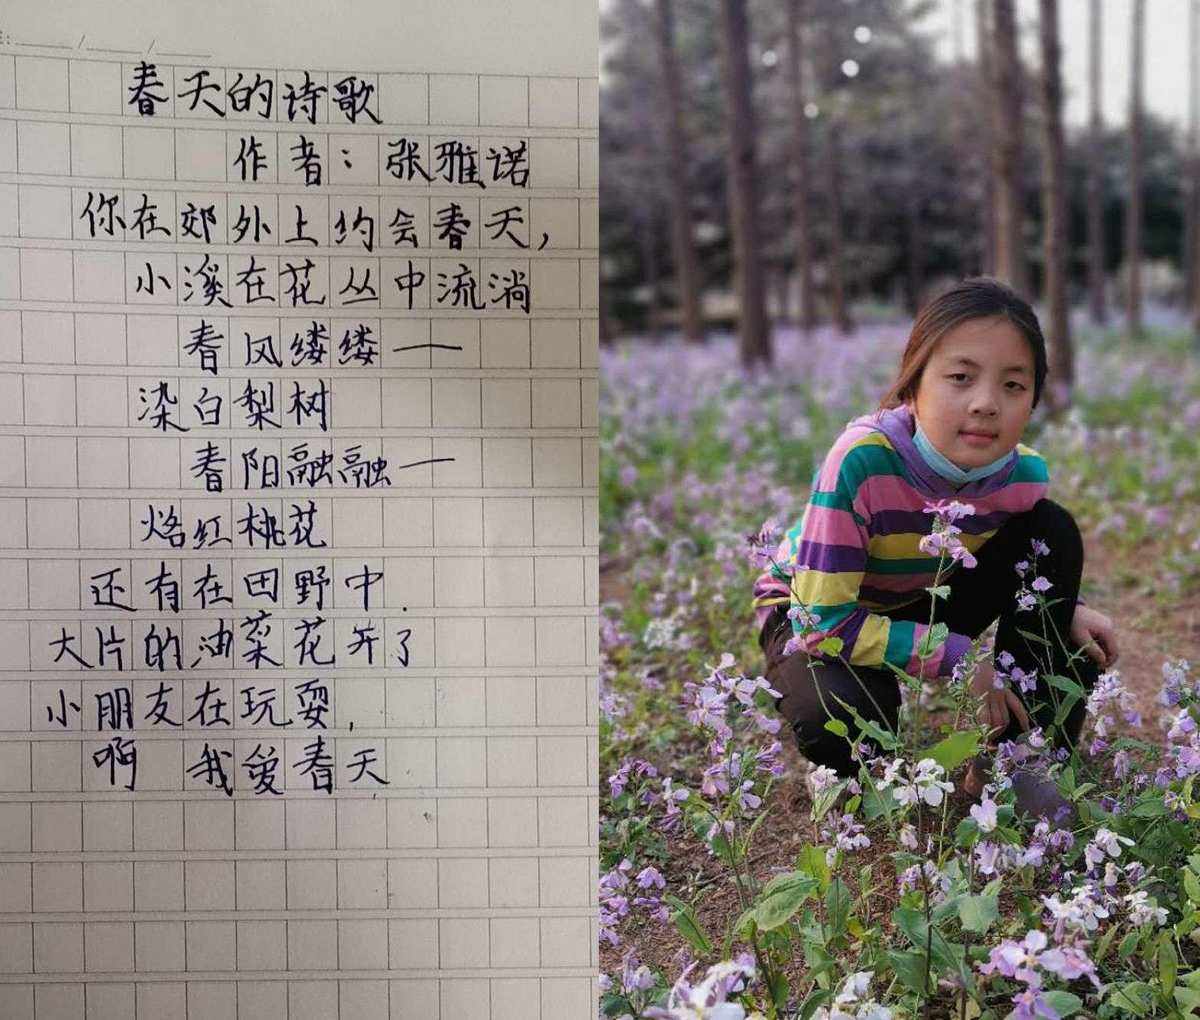 春天的诗歌
作者：张雅诺
你在郊外上约会春天，
小溪在花丛中流淌
春风缕缕——
染白梨树
春阳融融——
烙红桃花
还有在田野中．
大片的油菜花开了
小朋友在玩耍，
啊 我爱春天．